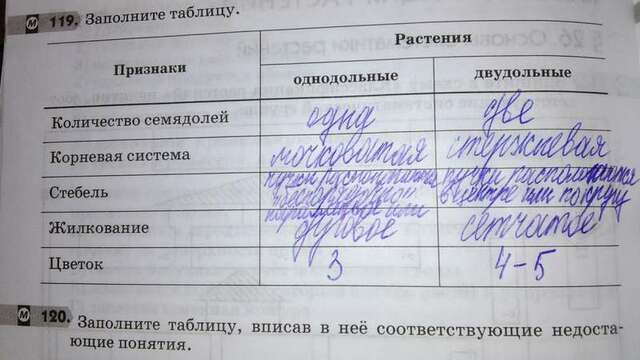 119. Заполните таблицу.
Признаки
Растения
однодольные
двудольные
Количество семядолей
одна
две
Корневая система
мочковатая
стержневая
Стебель
пучки
пучки располагаются
в центре или по кругу
Жилкование
параллельное или
дуговое
сетчатое
Цветок
3
4-5
120. Заполните таблицу, вписав в неё соответствующие недоста-
ющие понятия.